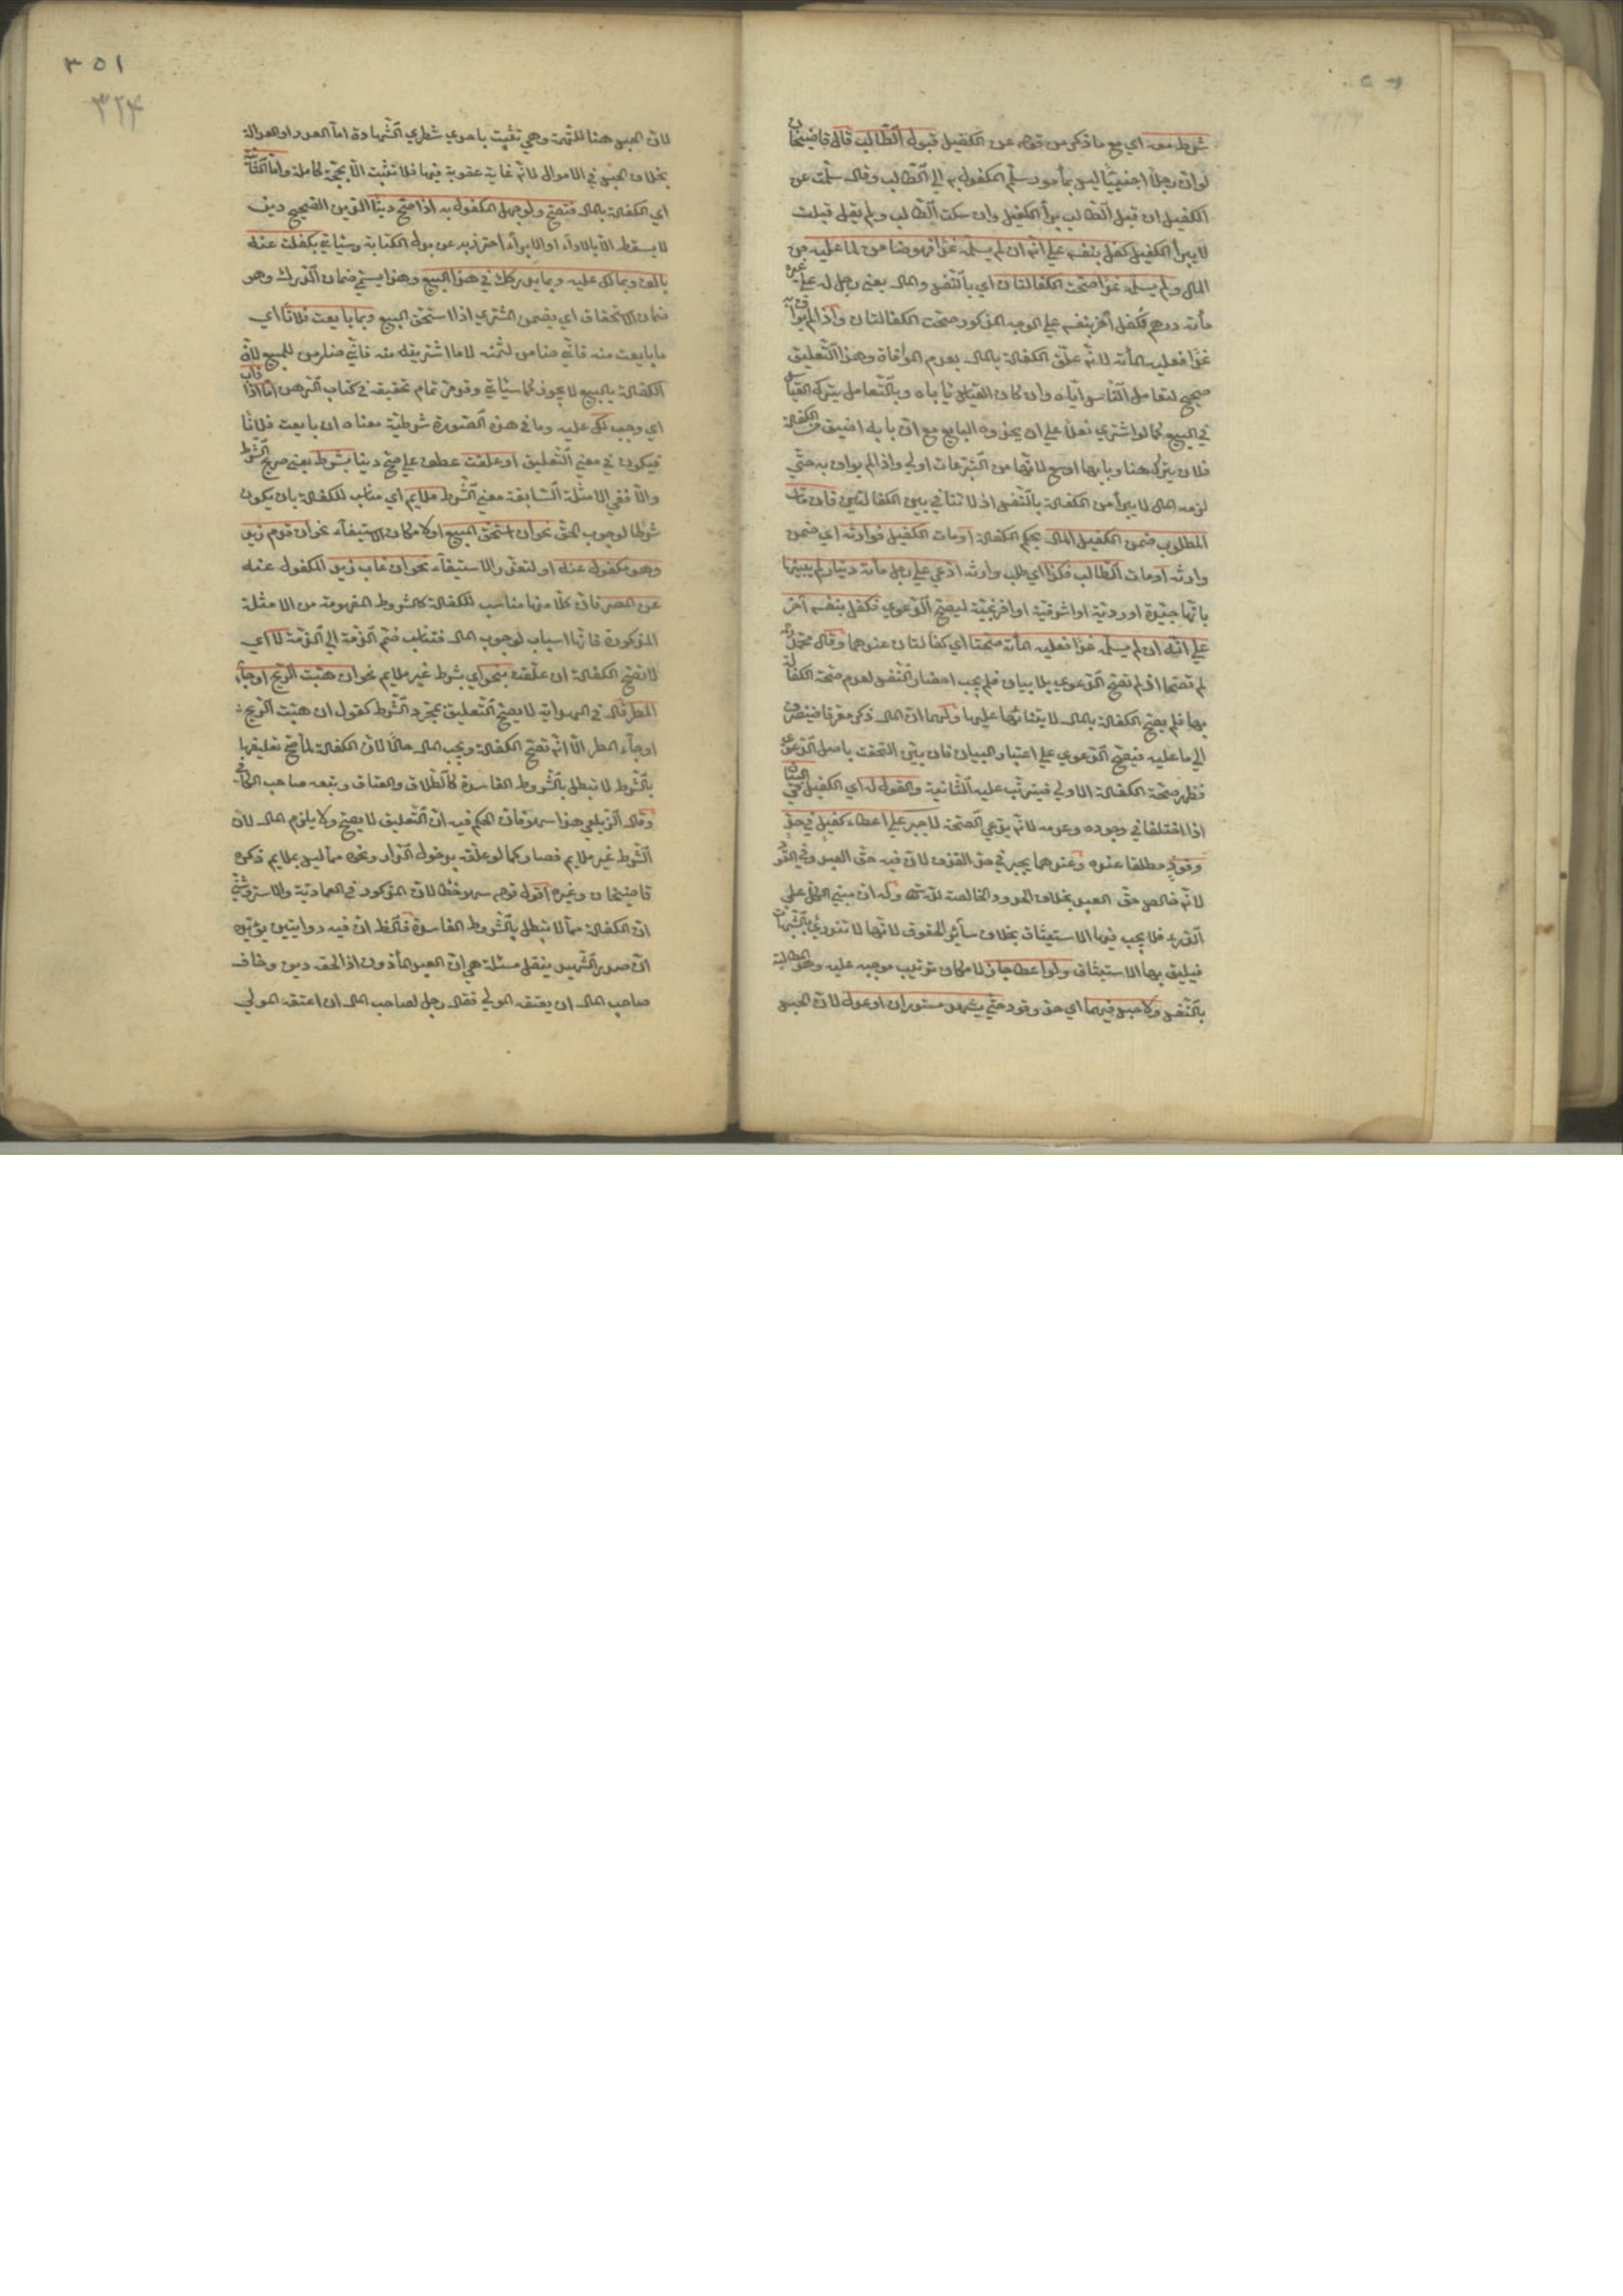 شرط معه اي مع ما ذكر من قوله عن الكفيل قبول الطالب قال قاضيخان
لو ان رجلا اجنبيا ليس بمأمور سلم المكفول به الي الطالب وقال سلمت عن
الكفيل ان قبل الطالب برأ الكفيل وان سكت الطالب ولم يقل قبلت
لا يبرأ الكفيل كفل بنفسه علي انه ان لم يسلمه غدا فهو ضامن لما عليه من
المال ولم يسلمه غدا صحت الكفالتان اي بالنفس والمال يعني رجل له علي غيره
مأته درهم فكفل آخر بنفسه علي الوجه المذكور صحت الكفالتان واذا لم يواف به
غدا فعليه المأته لانه علق الكفالة بالمال بعدم الموافاة وهذا التعليق
صحيح لتعامل الناس اياه وان كان القياس يأباه وبالتعامل يترك القياس
في البيع كما لو اشتري نعلا علي ان يحذوه البايع مع ان بابه اضيق من الكفالة
فلان يترك هنا وبابها اوسع لانها من التبرعات اولي واذا لم يواف به حتي
لزمه المال لا يبرأ من الكفالة بالنفس اذ لا تنافي بين الكفالتين فان مات
المطلوب ضمن الكفيل المال بحكم الكفالة او مات الكفيل فوارثه اي ضمن
وارثه او مات الطالب فكذا اي طلب وارثه ادعي علي رجل مأته دينار لم يبينها
بانها جيدة او ردية او اشرفية او افرنجية ليصح الدعوي فكفل بنفسه آخر
علي انه ان لم يسلمه غدا فعليه المأته صحتا اي كفالتان عندهما وقال محمد رحمه
لم تصحا اذ لم تصح الدعوي بلا بيان فلم يجب احضار النفس لعدم صحة الكفالة
بها فلم يصح الكفالة بالمال لابتنائها عليها ولهما ان المال ذكر معرفا فينصرف
الي ما عليه فيصح الدعوي علي اعتبار البيان فان بين التحقت باصل الدعوي
فظهر صحة الكفالة الاولي فيترتب عليه الثانية والقول له اي الكفيل في البيان
اذا اختلفا في وجوده وعدمه لانه يدعي الصحة لا جبر علي اعطاء كفيل في حد
وقود مطلقا عنده وعندهما يجبر في حد القذف لان فيه حق العبد وفي القود
لانه خالص حق العبد بخلاف الحدود الخالصة لله تعالى وله ان مبني الكل علي
الدرء فلا يجب فيها الاستيثاق بخلاف سائر الحقوق لانها لا تندرئ بالشبهات
فيليق بها الاستيثاق ولو اعطا جاز لامكان ترتيب موجبه عليه وهو المطالبة
بالنفس ولا حبس فيهما اي حد وقود حتي يشهد مستوران او عدل لان الحبس
٣٥١
٣٢٤
لان الحبس هنا للتهمة وهي تثبت باحدي شطري الشهادة اما العدد او العدالة
بخلاف الحبس في الاموال لانه غاية عقوبة فيها فلا تثبت الا بحجة كاملة واما الثانية
اي الكفالة بالمال فتصح ولو جهل المكفول به اذا صح دينا الدين الصحيح دين
لا يسقط الا بالاداء او الابراء احترز به عن بدل الكتابة وسيأتي بكفلت عنه
بالف وبما لك عليه وبما يدركك في هذا البيع وهذا يسمي ضمان الدرك وهو
ضمان الاستحقاق اي يضمن المشتري اذا استحق المبيع وبما بايعت فلانا اي
ما بايعت منه فاني ضامن لثمنه لا ما اشتريته منه فاني ضامن للمبيع لان
الكفالة بالمبيع لا يجوز كما سيأتي وقد مر تمام تحقيقه في كتاب الرهن اما اذا ذاب
اي وجب لك عليه وما في هذه الصورة شرطية معناه ان بايعت فلانا
فيكون في معني التعليق او علقت عطف علي صح دينا بشرط يعني صريح الشرط
والا ففي الامثلة السابقة معني الشرط ملايم اي مناسب للكفالة بان يكون
شرطا لوجوب الحق نحو ان استحق المبيع او لامكان الاستيفاء نحو ان قدم زيد
وهو مكفول عنه او لتعذر الاستيفاء نحو ان غاب زيد المكفول عنه
عن المصر فان كلا منها مناسب للكفالة كالشروط المفهومة من الامثلة
المذكورة فانها اسباب لوجوب المال فتناسب ضم الذمة الي الذمة لا اي
لا تصح الكفالة ان علقت بنحو اي بشرط غير ملايم نحو ان هبت الريح او جاء
المطر قال في الهداية لا يصح التعليق بمجرد الشرط كقوله ان هبت الريح
او جاء المطر الا انه تصح الكفالة ويجب المال حالا لان الكفالة لما صح تعليقها
بالشرط لا تبطل بالشروط الفاسدة كالطلاق والعتاق وتبعه صاحب الكافي
وقال الزيلعي هذا سهو فان الحكم فيه ان التعليق لا يصح ولا يلزم المال لان
الشرط غير ملايم فصار كما لو علقه بدخول الدار ونحوه مما ليس بملايم ذكره
قاضيخان وغيره اقول قوله سهو خطا لان المذكور في العمادية والاستروشني
ان الكفالة مما لا تبطل بالشروط الفاسدة فالظ ان فيه روايتين يؤيده
ان صدر الشهيد ينقل مسئلة هي ان العبد المأذون اذا لحقه دين وخاف
صاحب المال ان يعتقه المولي فقال رجل لصاحب المال ان اعتقه المولي